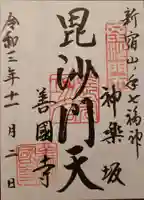 新宿山ノ手七福神
神楽坂
毘沙門天
善國寺
令和二年十一月二日